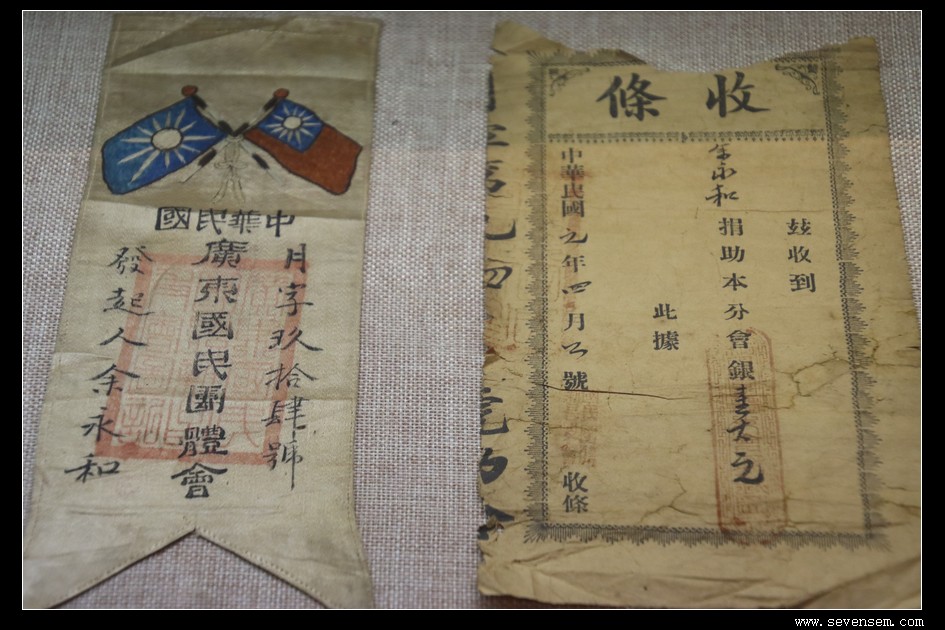 中華民國
月字玖拾肆號
廣東國民團體會
發起人余永和
收條
茲收到
余永和
捐助本分會銀
元
此據
中華民國元年四月
號
收條
www.sevensem.com